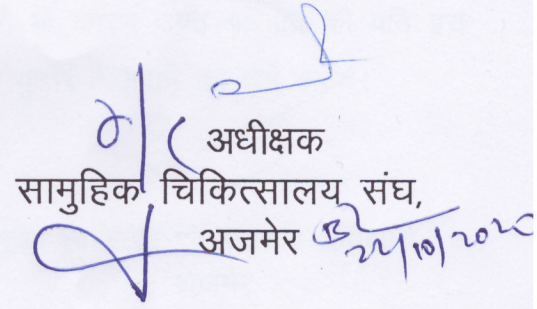 अधीक्षक
सामुहिक चिकित्सालय संघ,
अजमेर
22/10/2020